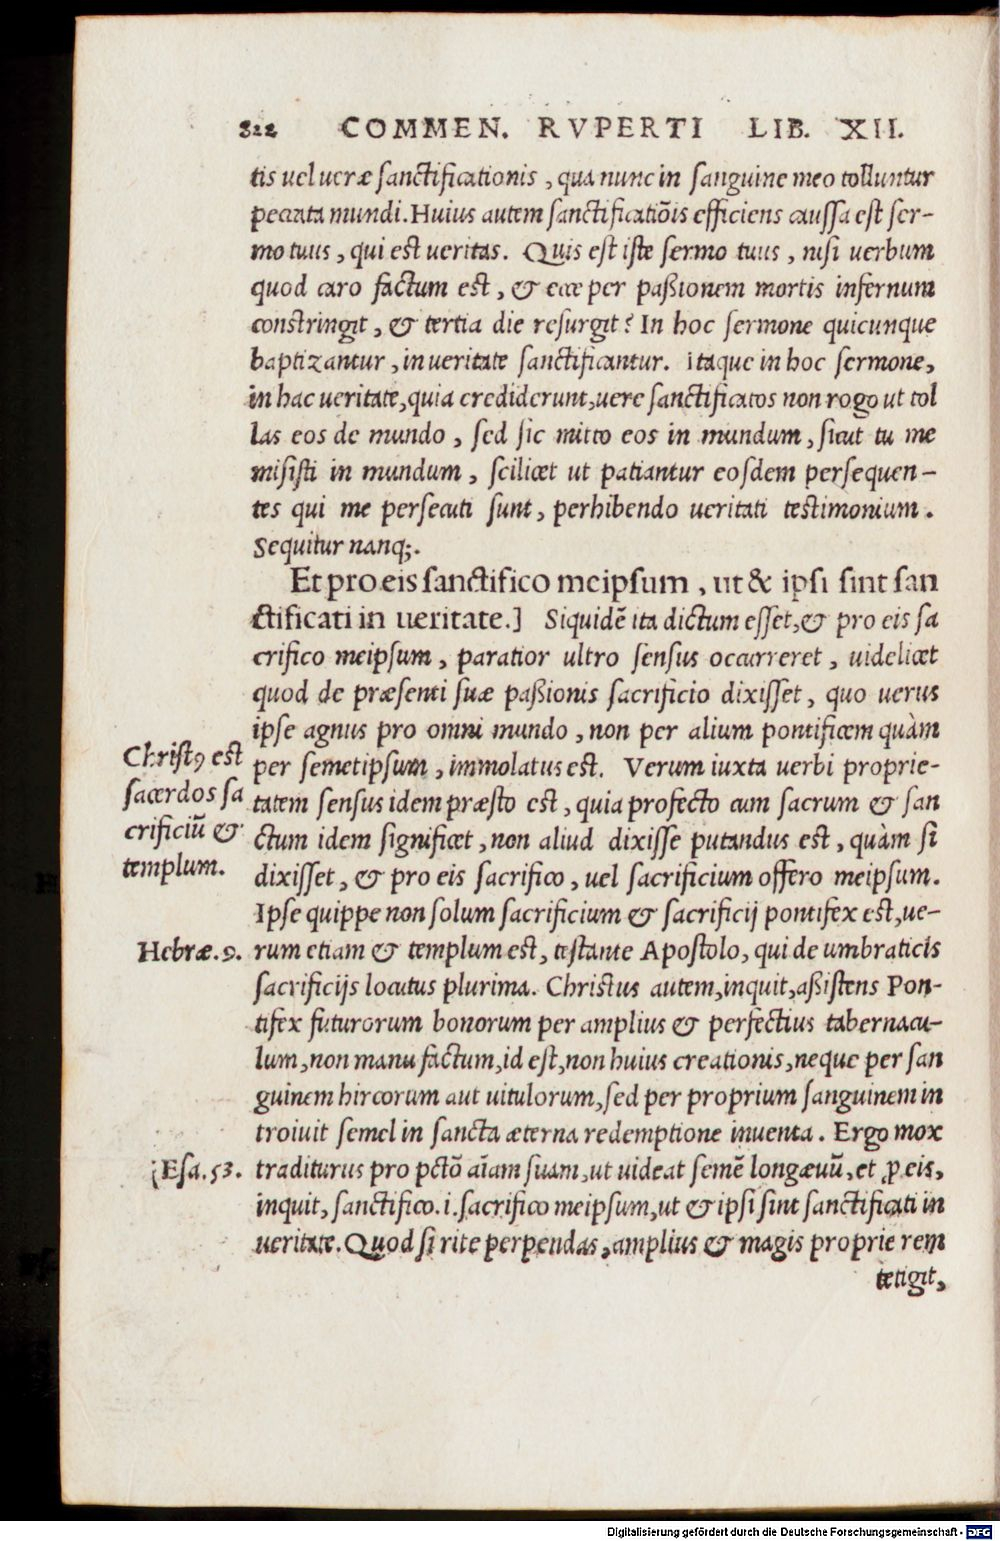 822 COMMEN. RVPERTI LIB. XII.
tis uel ueræ sanctificationis, qua nunc in sanguine meo tolluntur
peccata mundi. Huius autem sanctificatiõis efficiens caussa est ser-
mo tuus, qui est ueritas. Quis est iste sermo tuus, nisi uerbum
quod caro factum est, & ecce per passionem mortis infernum
constringit, & tertia die resurgit? In hoc sermone quicunque
baptizantur, in ueritate sanctificantur. Itaque in hoc sermone,
in hac ueritate, quia crediderunt, uere sanctificatos non rogo ut tol
las eos de mundo, sed sic mitto eos in mundum, sicut tu me
misisti in mundum, scilicet ut patiantur eosdem persequen-
tes qui me persecuti sunt, perhibendo ueritati testimonium.
Sequitur nanq;.
Et pro eis sanctifico meipsum, ut & ipsi sint san
ctificati in ueritate.] Siquidẽ ita dictum esset, & pro eis sa
crifico meipsum, paratior ultro sensus occurreret, uidelicet
quod de præsenti suæ passionis sacrificio dixisset, quo uerus
ipse agnus pro omni mundo, non per alium pontificem quàm
Christꝰ est
per semetipsum, immolatus est. Verum iuxta uerbi proprie-
sacerdos sa
tatem sensus idem præsto est, quia profecto cum sacrum & san
crificiũ &
ctum idem significet, non aliud dixisse putandus est, quàm si
templum.
dixisset, & pro eis sacrifico, uel sacrificium offero meipsum.
Ipse quippe non solum sacrificium & sacrificij pontifex est, ue-
Hebræ. 9.
rum etiam & templum est, testante Apostolo, qui de umbraticis
sacrificijs locutus plurima. Christus autem, inquit, assistens Pon-
tifex futurorum bonorum per amplius & perfectius tabernacu-
lum, non manu factum, id est, non huius creationis, neque per san
guinem hircorum aut uitulorum, sed per proprium sanguinem in
troiuit semel in sancta æterna redemptione inuenta. Ergo mox
Esa. 53.
traditurus pro pctõ aĩam suam, ut uideat semẽ longæuũ, et ꝓ eis,
inquit, sanctifico. i. sacrifico meipsum, ut & ipsi sint sanctificati in
ueritate. Quod si rite perpendas, amplius & magis proprie rem
tetigit,
Digitalisierung gefördert durch die Deutsche Forschungsgemeinschaft - DFG